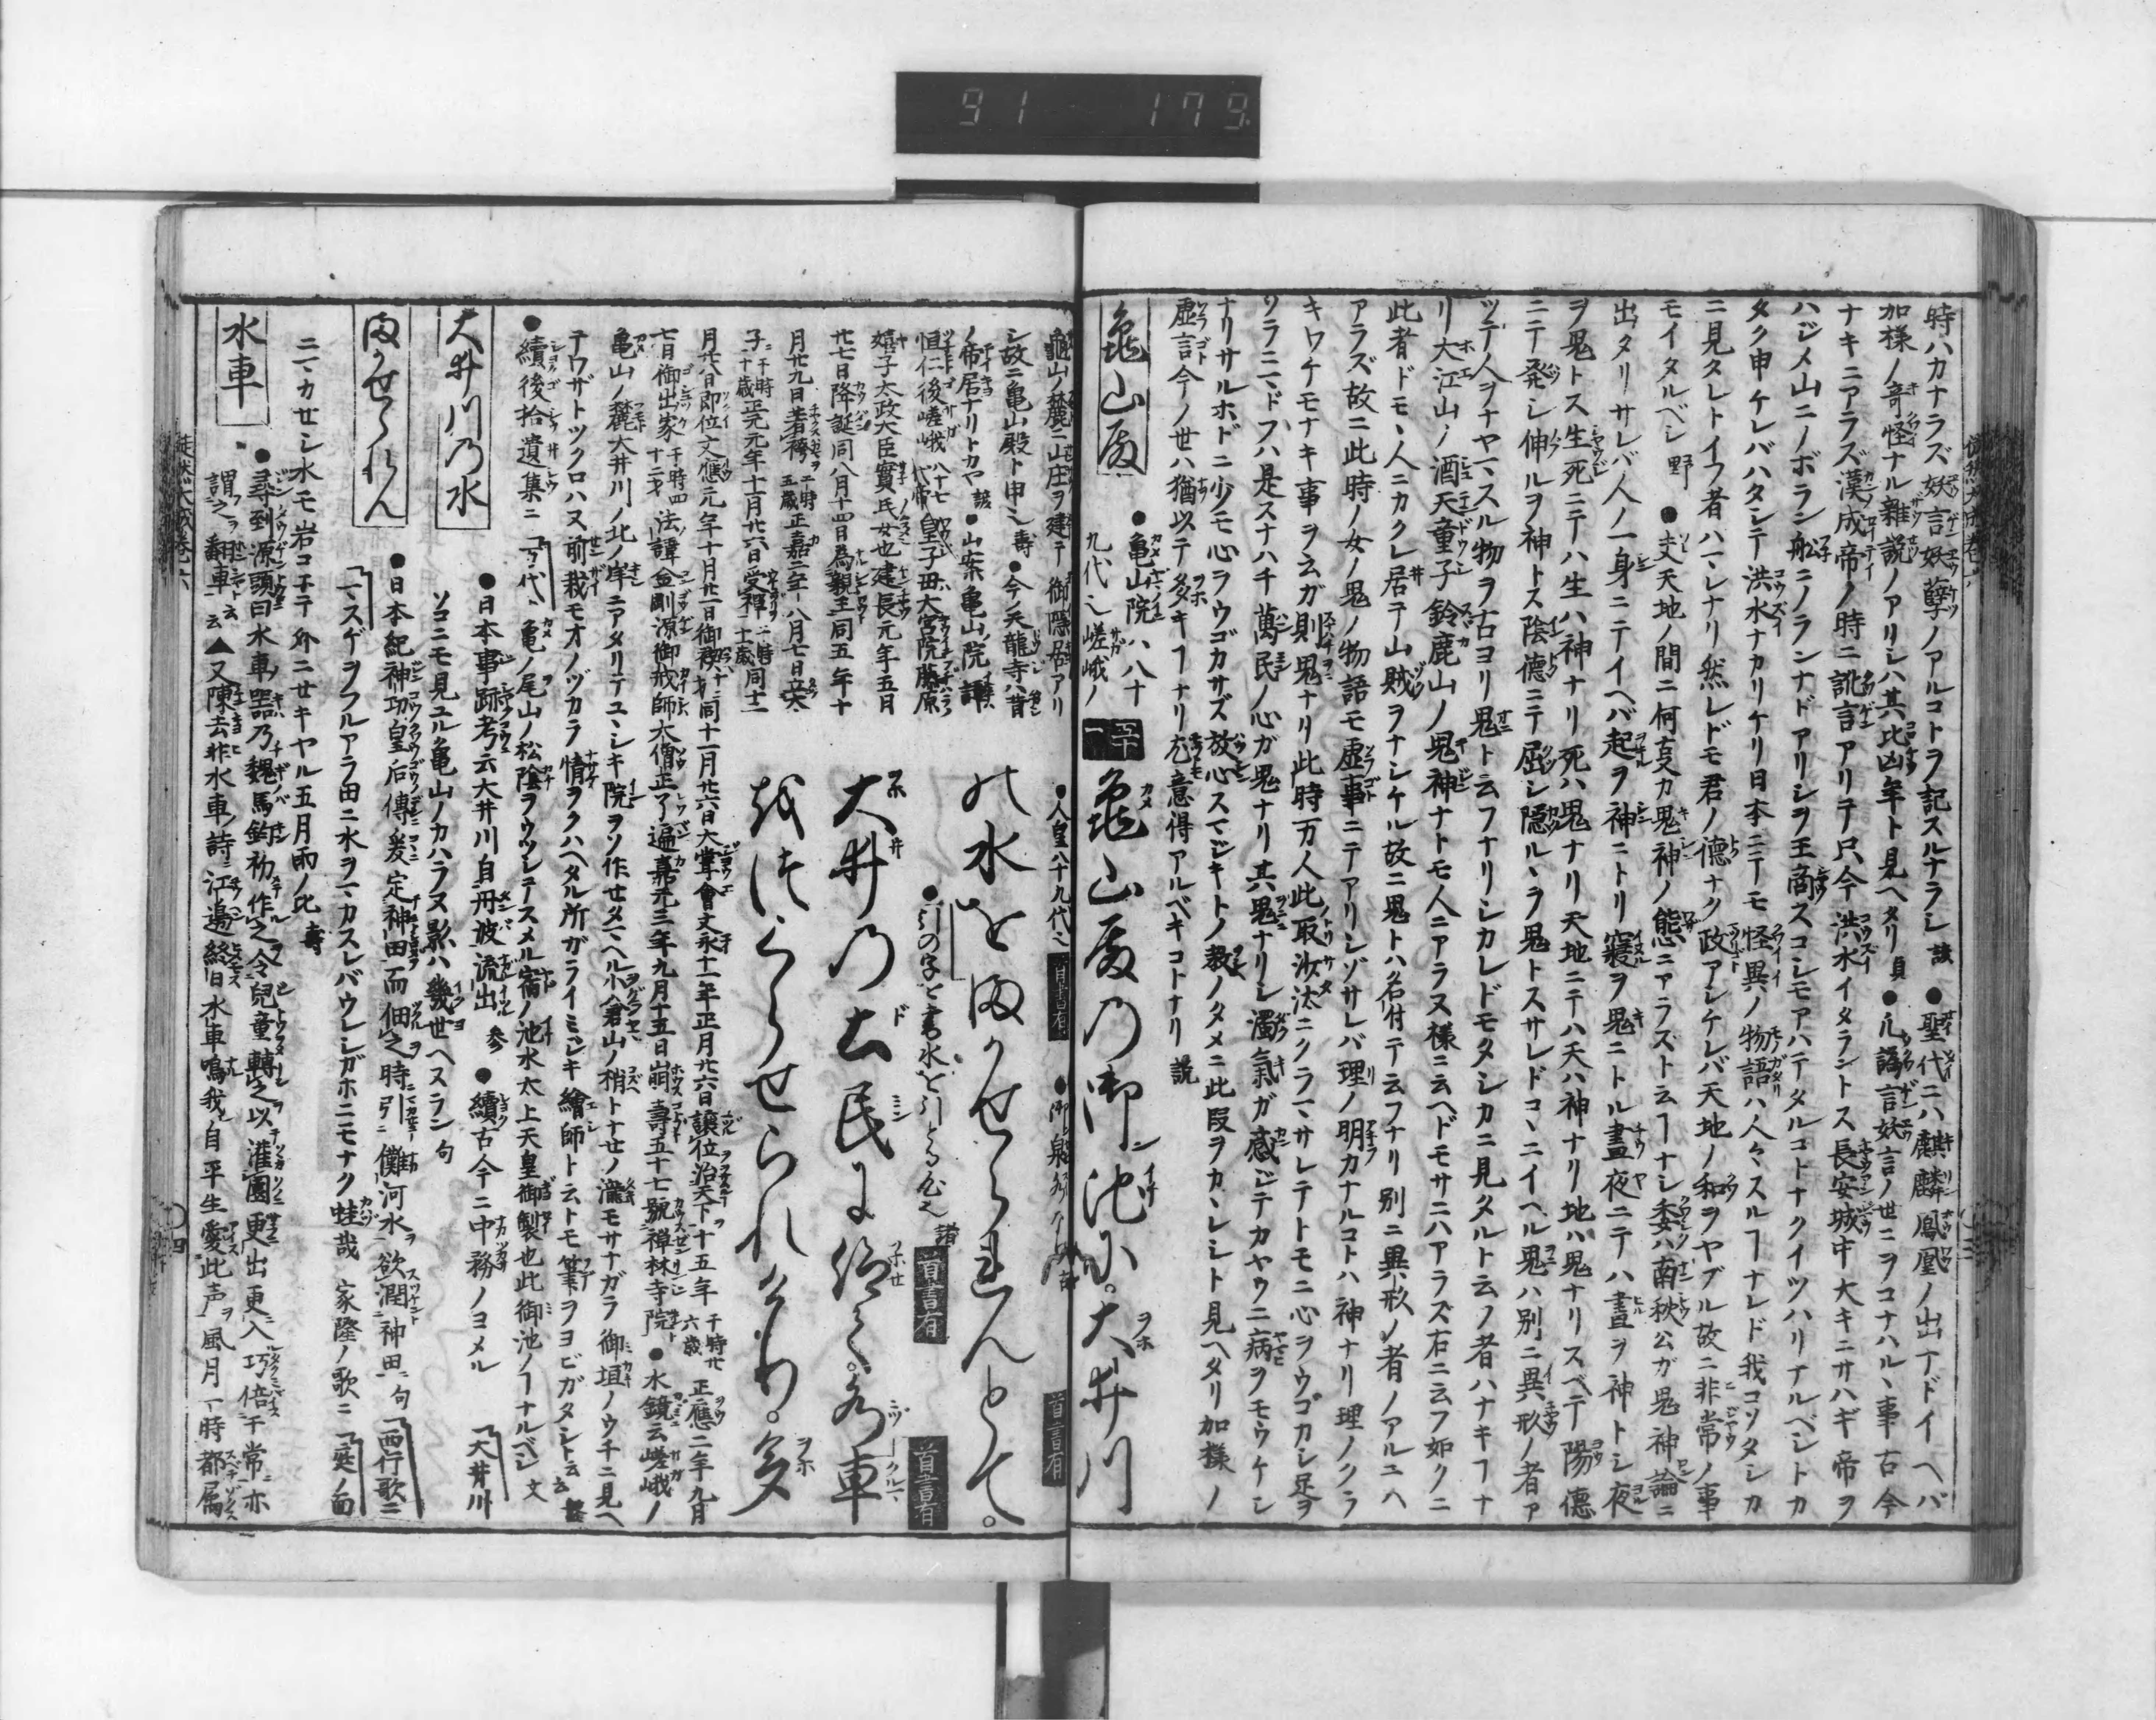 91 179
時ハカナラズ妖言妖孽ノアルコトヲ記スルナラシ 諺 ●聖代ニハ麒麟鳳凰ノ出ナドイヘバ
加様ノ奇怪ナル雑説ノアリシハ其比凶年ト見ヘタリ 貞 ●凡譌言妖言ノ世ニヲコナハルヽ事古今
ナキニアラズ漢成帝ノ時ニ訛言アリテ只今洪水イタラントス長安城中大キニサハギ帝ヲ
ハジメ山ニノボラシ舩ニノランナドアリシヲ王商スコシモアハテタルコトナクイツハリナルベシトカ
タク申ケレバハタシテ洪水ナカリケリ日本ニテモ怪異ノ物語ハ人々スルヿナレド我コソタシカ
ニ見タレトイフ者ハマレナリ然レドモ君ノ德ナク政アシケレバ天地ノ和ヲヤブル故ニ非常ノ事
モイタルベシ 野 ●夫天地ノ間ニ何叓カ鬼神ノ態ニアラスト云ヿナシ委ハ南秋公ガ鬼神論ニ
出タリサレバ人ノ一身ニテイヘバ起ヲ神ニトリ寢ヲ鬼ニトル晝夜ニテハ晝ヲ神トシ夜
ヲ鬼トス生死ニテハ生ハ神ナリ死ハ鬼ナリ天地ニテハ天ハ神ナリ地ハ鬼ナリスベテ陽德
ニテ発シ伸ルヲ神トス陰德ニテ屈シ隱ルヽヲ鬼トスサレドコヽニイヘル鬼ハ別ニ異形ノ者ア
ツテ人ヲナヤマスル物ヲ古ヨリ鬼ト云フナリシカレドモタシカニ見タルト云フ者ハナキヿナ
リ大江山ノ酒天童子鈴鹿山ノ鬼神ナトモ人ニアラヌ樣ニ云ヘドモサニハアラズ右ニ云フ如クニ
此者ドモヽ人ニカクレ居テ山賊ヲナシケル故ニ鬼トハ名付テ云フナリ別ニ異形ノ者ノアルユヘ
アラズ故ニ此時ノ女ノ鬼ノ物語モ虚事ニテアリシゾサレバ理ノ明カナルコトハ神ナリ理ノクラ
キワケモナキ事ヲ云ガ則鬼ナリ此時万人此取沙汰ニクラマサレテトモニ心ヲウゴカシ足ヲ
ソラニマドフハ是スナハチ萬民ノ心ガ鬼ナリ其鬼ナリシ濁氣ガ感ジテカヤウニ病ヲモウケシ
ナリサルホドニ少モ心ヲウゴカサズ放心スマジキトノ教ノタメニ此段ヲカヽレシト見ヘタリ加樣ノ
虚言今ノ世ハ猶以テ多キヿナリ尤意得アルベキコトナリ 説
龜山殿 ●亀山院ハ八十九代也嵯峨ノ
五十一 龜山殿の御池に。大井川
亀山ノ麓ニ山庄ヲ建テ御隱居アリ
シ故ニ亀山殿ト申シ 壽 ●今ノ天龍寺ハ昔
ノ帝居ナリトカヤ 諺 ●山案亀山院諱
恒仁後嵯峨八十七代帝皇子母大宮院藤原
嬉子太政大臣實氏女也建長元年五月
廿七日降誕同八月十四日為親王同五年十
月廿九日著袴 五歳 正嘉二年八月七日立太
子 十歳 正元元年十一月廿六日受禪 十一歳 同十二
●人皇八十九代也 首書有
の水をまかせられんとて。
●引の字を書水を引とる心也 諸 首書有 首書有
大井の土民に仰て。水車
をつくらせられけり。多
月廿八日即位文應元年十月廿一日御禊同十一月廿六日大嘗會文永十一年正月廿六日讓位治天下十五年 正應二年九月
七日御出家 法諱金剛源御戒師大僧正了遍嘉元三年九月十五日崩壽五十七號禅林寺院 ●水鏡云嵯峨ノ
亀山ノ麓大井川ノ此ノ岸ニアタリテユヽシキ院ヲソ作セ給ヘル小倉山ノ梢トナセノ瀧モサナガラ御垣ノウチニ見ヘ
テワザトツクロハヌ前栽モオノヅカラ情ヲクハヘタル所ガライミジキ繪師ト云トモ筆ヲヨビガタシト云云 盤
●續後拾遺集ニ 万代ヽ亀ノ尾山ノ松陰ヲウツシテスメル宿ノ池水太上天皇御製也此御池ノヿナルベシ 文
大井川乃水 ●日本事跡考云大井川自丹波流出 参 ●續古今ニ中務ノヨメル 大井川
ソコニモ見ユル亀山ノカハラヌ影ハ幾世ヘスラン 句
まかせられん ●日本紀神功皇后傳爰定神田而佃之時引儺河水ヲ欲潤神田 句 西行歌ニ
マスゲヲフルアラ田ニ水ヲマカスレバウレシガホニモナク蛙哉 家隆ノ歌ニ 庭ノ面
ニマカセシ水モ岩コエテ外ニセキヤル五月雨ノ比 壽
水車 ●尋到源頭曰水車噐乃魏馬鈞初作之令兒童轉之以灌園更出更入巧倍于常亦
謂之翻車云 ▲又陳去非水車詩ニ江邊終日水車鳴我自平生愛此声風月一時都属
徒然大成巻六 〇四